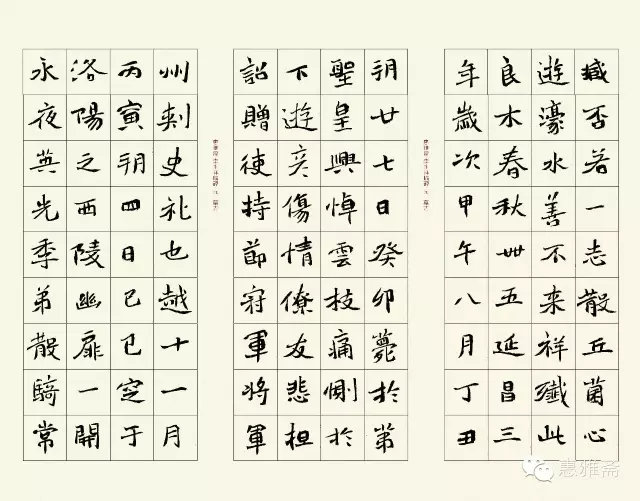 臧否若一志散丘菌心
遊濠水善不来祥殲此
良木春秋卅五延昌三
年歲次甲午八月丁丑
朔廿七日癸卯薨於第
聖皇興悼雲枝痛惻於
下遊彦傷情僚友悲担
詔贈使持節冠軍將軍
州刺史礼也越十一月
丙寅朔四日己巳窆于
洛陽之西陵幽扉一開
永夜英光季弟散騎常
惠雅斋